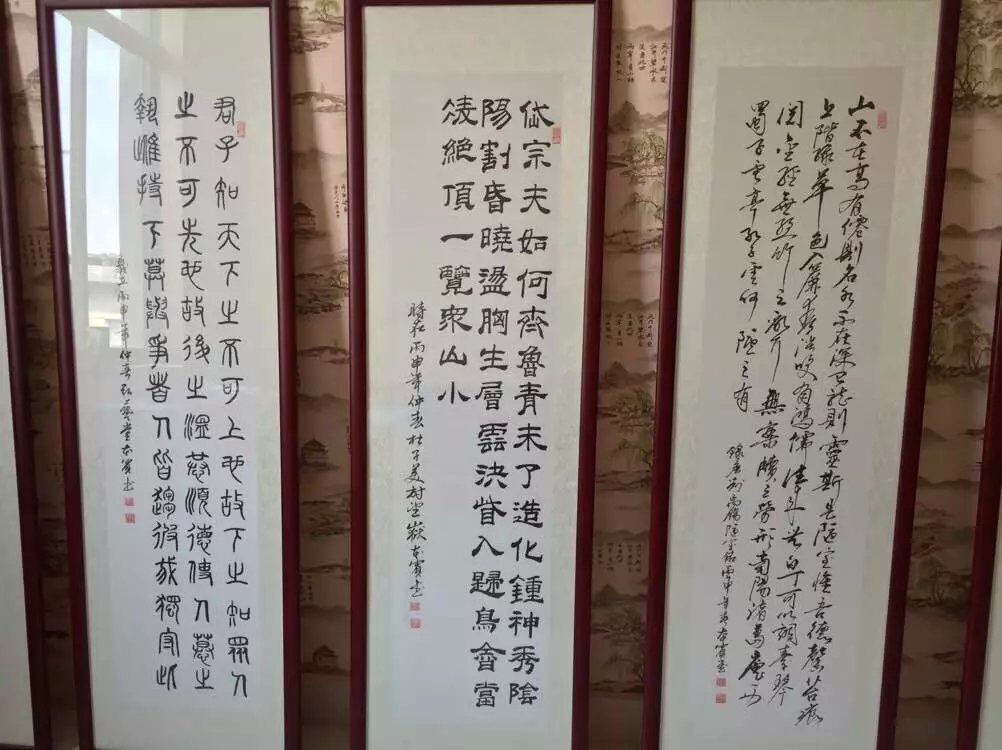 山不在高有僊則名水不在深有龍則靈斯是陋室惟吾德馨苔痕
上階綠草色入簾青談笑有鴻儒往來無白丁可以調素琴
閱金經無絲竹之亂耳無案牘之勞形南陽諸葛廬西
蜀子雲亭孔子云何陋之有
錄唐劉禹錫陋室銘丙申年本賓書
岱宗夫如何齊魯青未了造化鍾神秀陰
陽割昏曉盪胸生層雲決眥入歸鳥會當
凌絕頂一覽眾山小
時在丙申年仲春杜子美詩望嶽本賓書
君子知天下之不可上也故下之知眾人
之不可先也故後之溫恭慎德使人慕之
執雌持下莫與爭者人皆趨彼我獨守此
歲在丙申年仲春藝堂本賓書